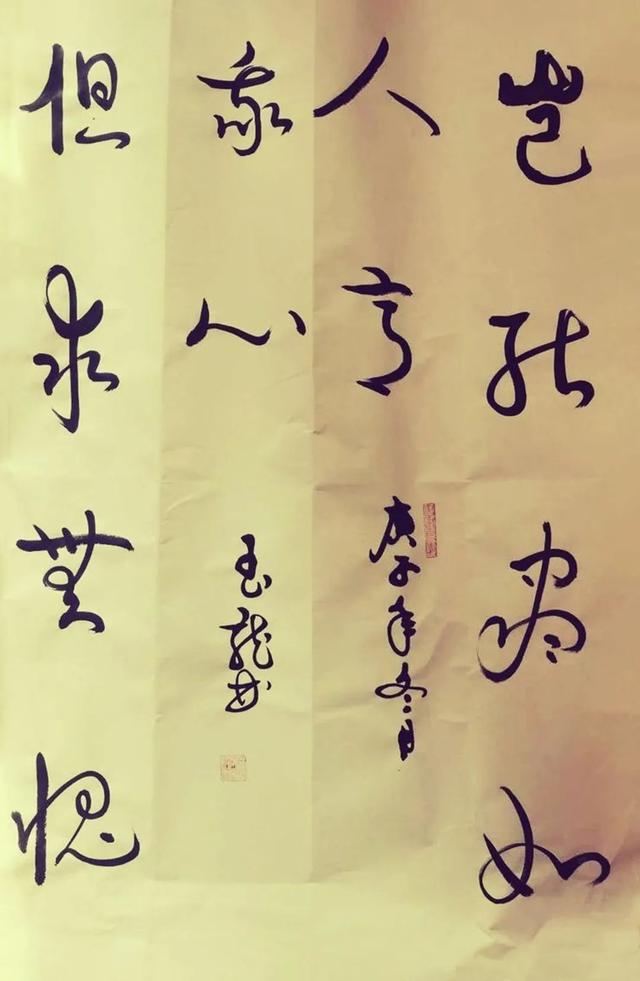 岂能尽如
人意
但求無愧
我心
庚子年冬月
玉龍书